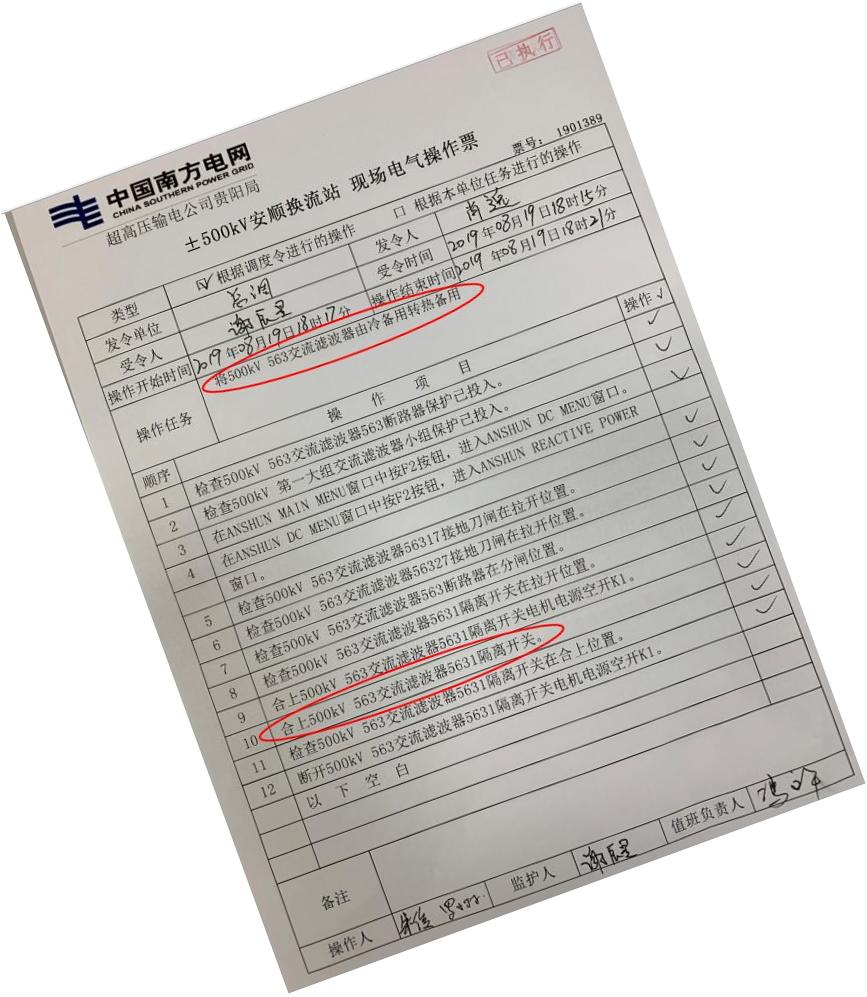 已执行
中国南方电网
CHINA SOUTHERN POWER GRID
超高压输电公司贵阳局
±500kV安顺换流站 现场电气操作票
票号: 1901389
类型 ☑ 根据调度令进行的操作 □ 根据本单位任务进行的操作
发令单位 总调 发令人 肖远
受令人 谢辰昱 受令时间 2019年08月19日18时15分
操作开始时间 2019年08月19日18时17分 操作结束时间 2019年08月19日18时21分
操作任务 将500kV 563交流滤波器由冷备用转热备用
顺序 操作项目 操作√
1 检查500kV 563交流滤波器563断路器保护已投入。 ✓
2 检查500kV 第一大组交流滤波器小组保护已投入。 ✓
3 在ANSHUN MAIN MENU窗口中按F2按钮，进入ANSHUN DC MENU窗口。 ✓
4 在ANSHUN DC MENU窗口中按F2按钮，进入ANSHUN REACTIVE POWER
窗口。 ✓
5 检查500kV 563交流滤波器56317接地刀闸在拉开位置。 ✓
6 检查500kV 563交流滤波器56327接地刀闸在拉开位置。 ✓
7 检查500kV 563交流滤波器563断路器在分闸位置。 ✓
8 检查500kV 563交流滤波器5631隔离开关在拉开位置。 ✓
9 合上500kV 563交流滤波器5631隔离开关电机电源空开K1。 ✓
10 合上500kV 563交流滤波器5631隔离开关。 ✓
11 检查500kV 563交流滤波器5631隔离开关在合上位置。 ✓
12 断开500kV 563交流滤波器5631隔离开关电机电源空开K1。 ✓
以下空白
备注
操作人 监护人 谢辰昱 值班负责人